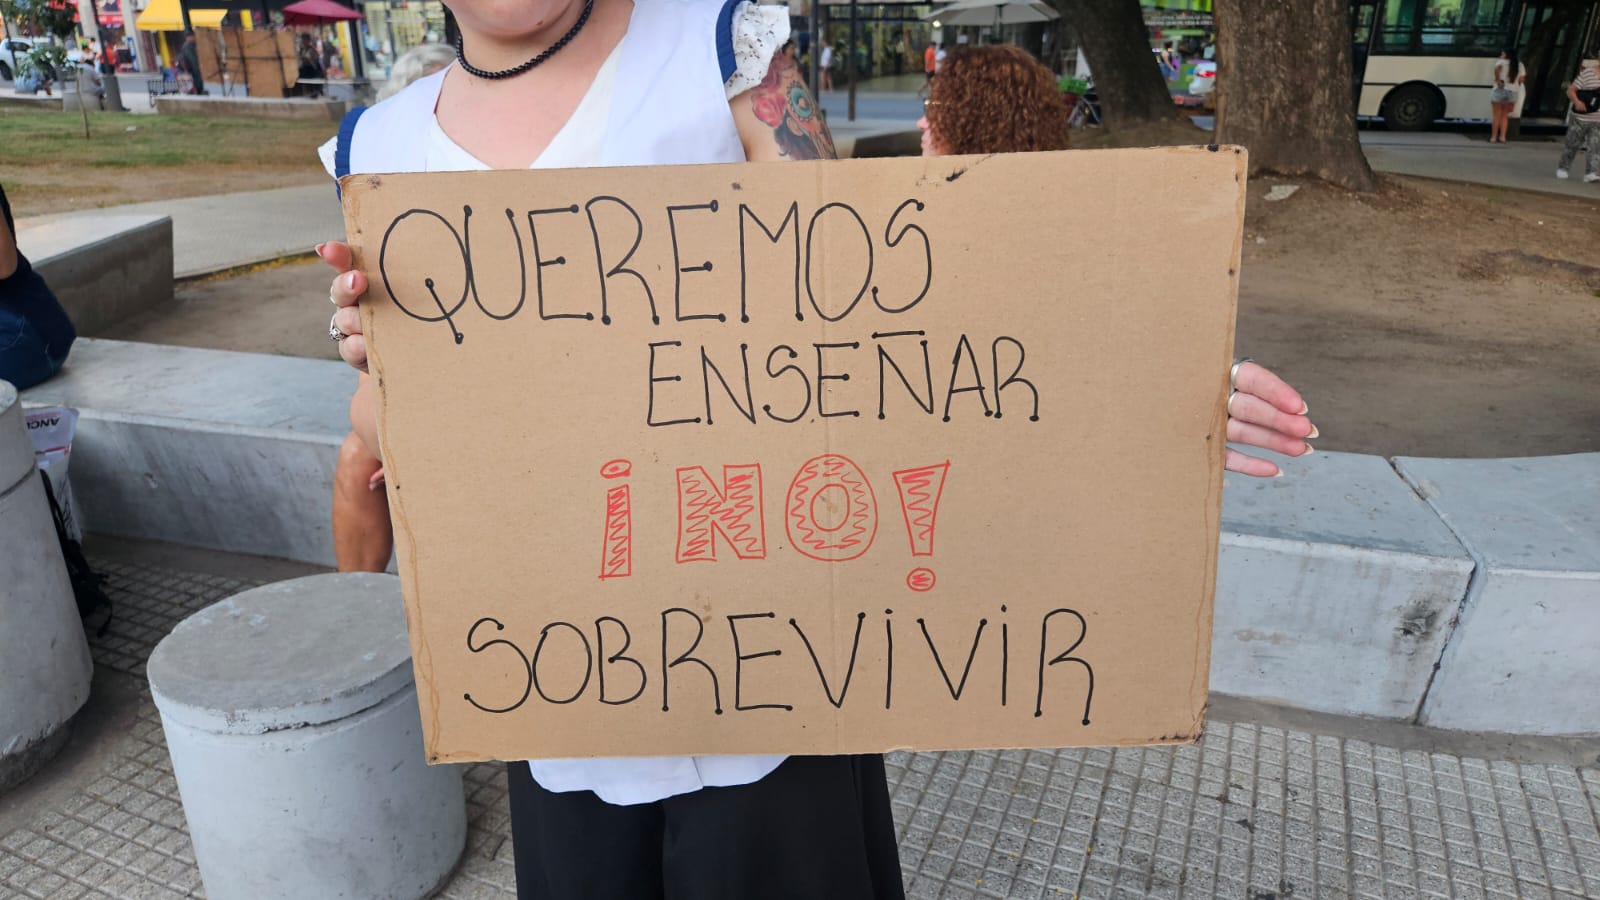 QUEREMOS
ENSEÑAR
¡NO!
SOBREViViR